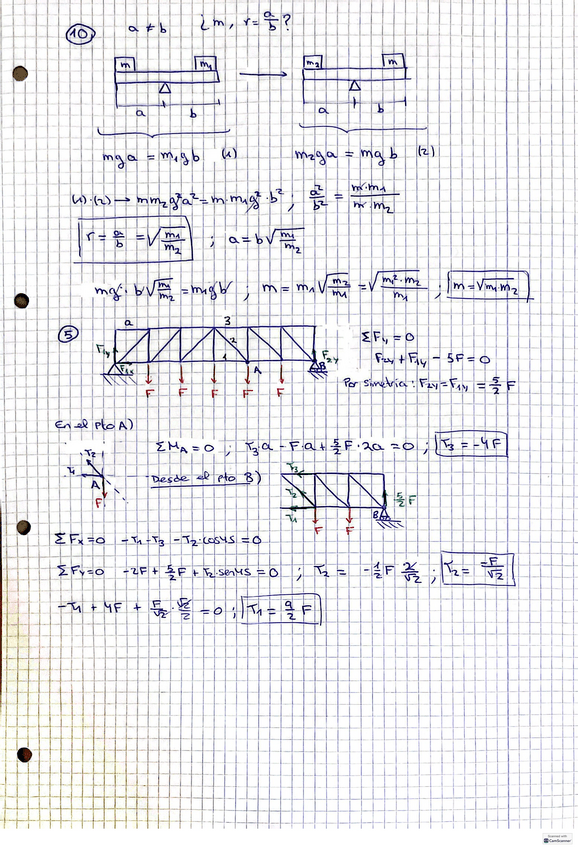 10 a ≠ b ¿m, r = a/b?
m m₁ m₂ m
a b a b
mga = m₁gb (1) m₂ga = mgb (2)
(1)·(2) → mm₂g²a² = m·m₁g²·b² ; a²/b² = m·m₁/m·m₂
r = a/b = √(m₁/m₂) ; a = b√(m₁/m₂)
mg·b√(m₁/m₂) = m₁gb ; m = m₁√(m₂/m₁) = √(m₁²·m₂/m₁) ; m = √(m₁m₂)
5 a 3 ΣFy = 0
F1y 2 F2y F2y + F1y - 5F = 0
F1x 1 A B Por simetria: F2y = F1y = 5/2 F
F F F F F
En el pto A)
ΣMA = 0 ; T₃a - F·a + 5/2 F·2a = 0 ; T₃ = -4F
T₂ T₁ A F Desde el pto B) T₃ T₂ T₁ B 5/2 F
F F
ΣFx = 0 -T₁ - T₃ - T₂·cos45 = 0
ΣFy = 0 -2F + 5/2 F + T₂ sen45 = 0 ; T₂ = -1/2 F 2/√2 ; T₂ = -F/√2
-T₁ + 4F + F/√2 · √2/2 = 0 ; T₁ = 9/2 F
Scanned with
CamScanner